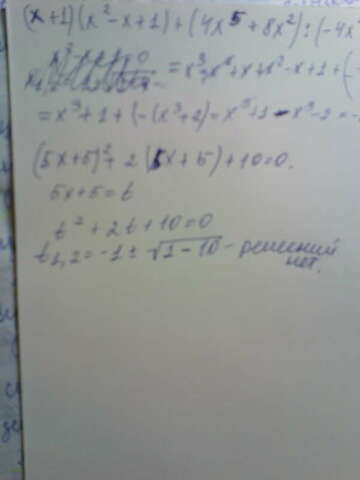 (x+1)(x²-x+1)+(4x⁵+8x²):(-4x
= x³-x²+x+x²-x+1+(-
= x³+1+(-(x³+2)=x³+1-x³-2=-
(5x+5)²+2(5x+5)+10=0.
5x+5=t
t²+2t+10=0
t₁,₂=-1±√1-10 - решений
нет.